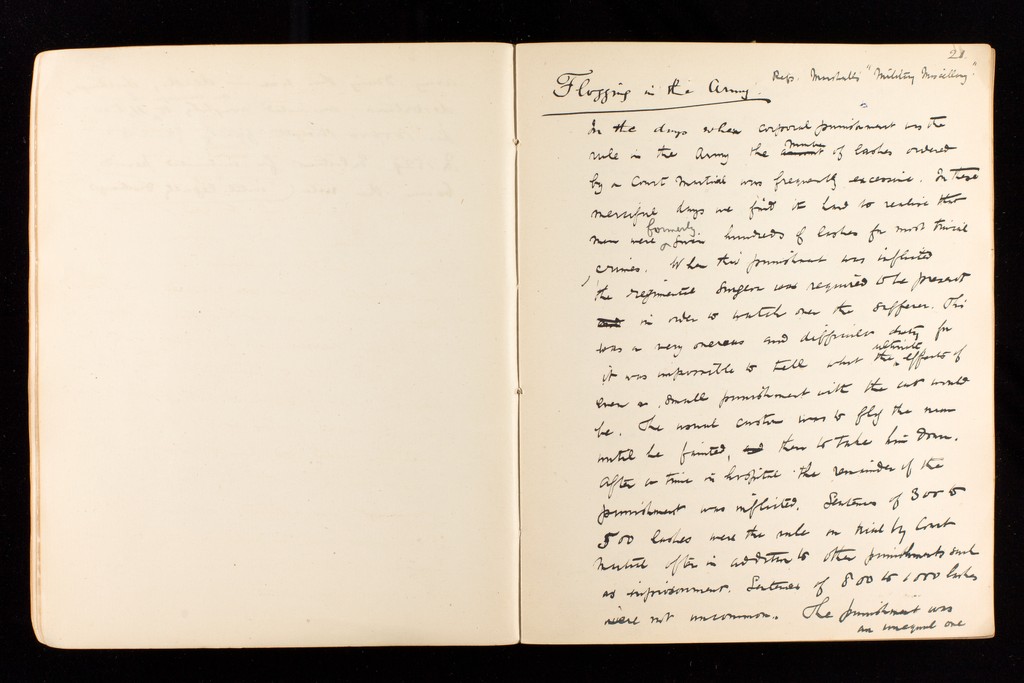 21
Refs. Marshall's "Military Miscellany."
Flogging in the Army.
In the days when corporal punishment was the
number
rule in the Army the amount of lashes ordered
by a Court Martial was frequently excessive. In these
merciful days we find it hard to realise that
formerly
men were given hundreds of lashes for most trivial
crimes. When this punishment was inflicted
the regimental Surgeon was required to be present
and in order to watch over the sufferer. This
was a very onerous and difficult duty for
ultimate
it was impossible to tell what the effects of
even a small punishment with the cat would
be. The usual custom was to flog the man
until he fainted, and then to take him down.
After a time in hospital the remainder of the
punishment was inflicted. Sentences of 300 to
500 lashes were the rule on trial by Court
Martial often in addition to other punishments such
as imprisonment. Sentences of 800 to 1000 lashes
were not uncommon. The punishment was
an unequal one